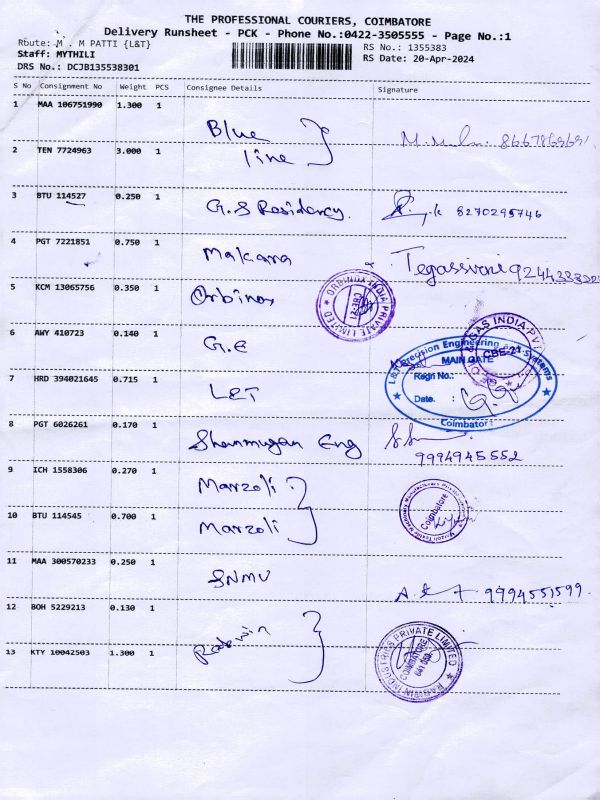 THE PROFESSIONAL COURIERS, COIMBATORE
Delivery Runsheet - PCK - Phone No.:0422-3505555 - Page No.:1
Route: M . M PATTI {L&T}
RS No.: 1355383
Staff: MYTHILI
RS Date: 20-Apr-2024
DRS No.: DCJB135538301
S No Consignment No Weight PCS Consignee Details Signature
1 MAA 106751990 1.300 1
Blue
2 TEN 7724963 3.000 1
line
3 BTU 114527 0.250 1 G.S Residency 8270295746
4 PGT 7221851 0.750 1 Makana
5 KCM 13065756 0.350 1 Orbinox
ORBINOX INDIA PRIVATE LIMITED
6 AWY 410723 0.140 1 G.E
GAS INDIA PVT
CBE-21
L&T Precision Engineering and Systems
MAIN GATE
Regn No.:
Date :
Coimbatore
7 HRD 394021645 0.715 1 L&T
8 PGT 6026261 0.170 1 Shanmugan Eng
9994945552
9 ICH 1558306 0.270 1 Marzoli
10 BTU 114545 0.700 1 Marzoli
Coimbatore
11 MAA 300570233 0.250 1 SNMV 9994551599
12 BOH 5229213 0.130 1
13 KTY 10042503 1.300 1
INDUSTRIES PRIVATE LIMITED
COIMBATORE